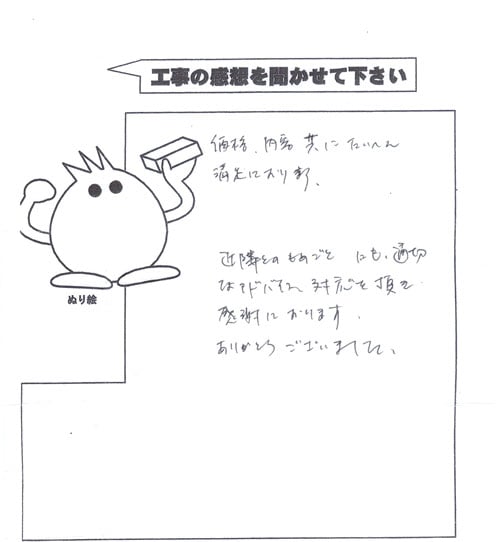 工事の感想を聞かせて下さい
価格、内容 共に たいへん
満足しております。
近隣とのもめごと にも、適切
なアドバイス、対応を頂き
感謝しております。
ありがとう ございました。
ぬり絵